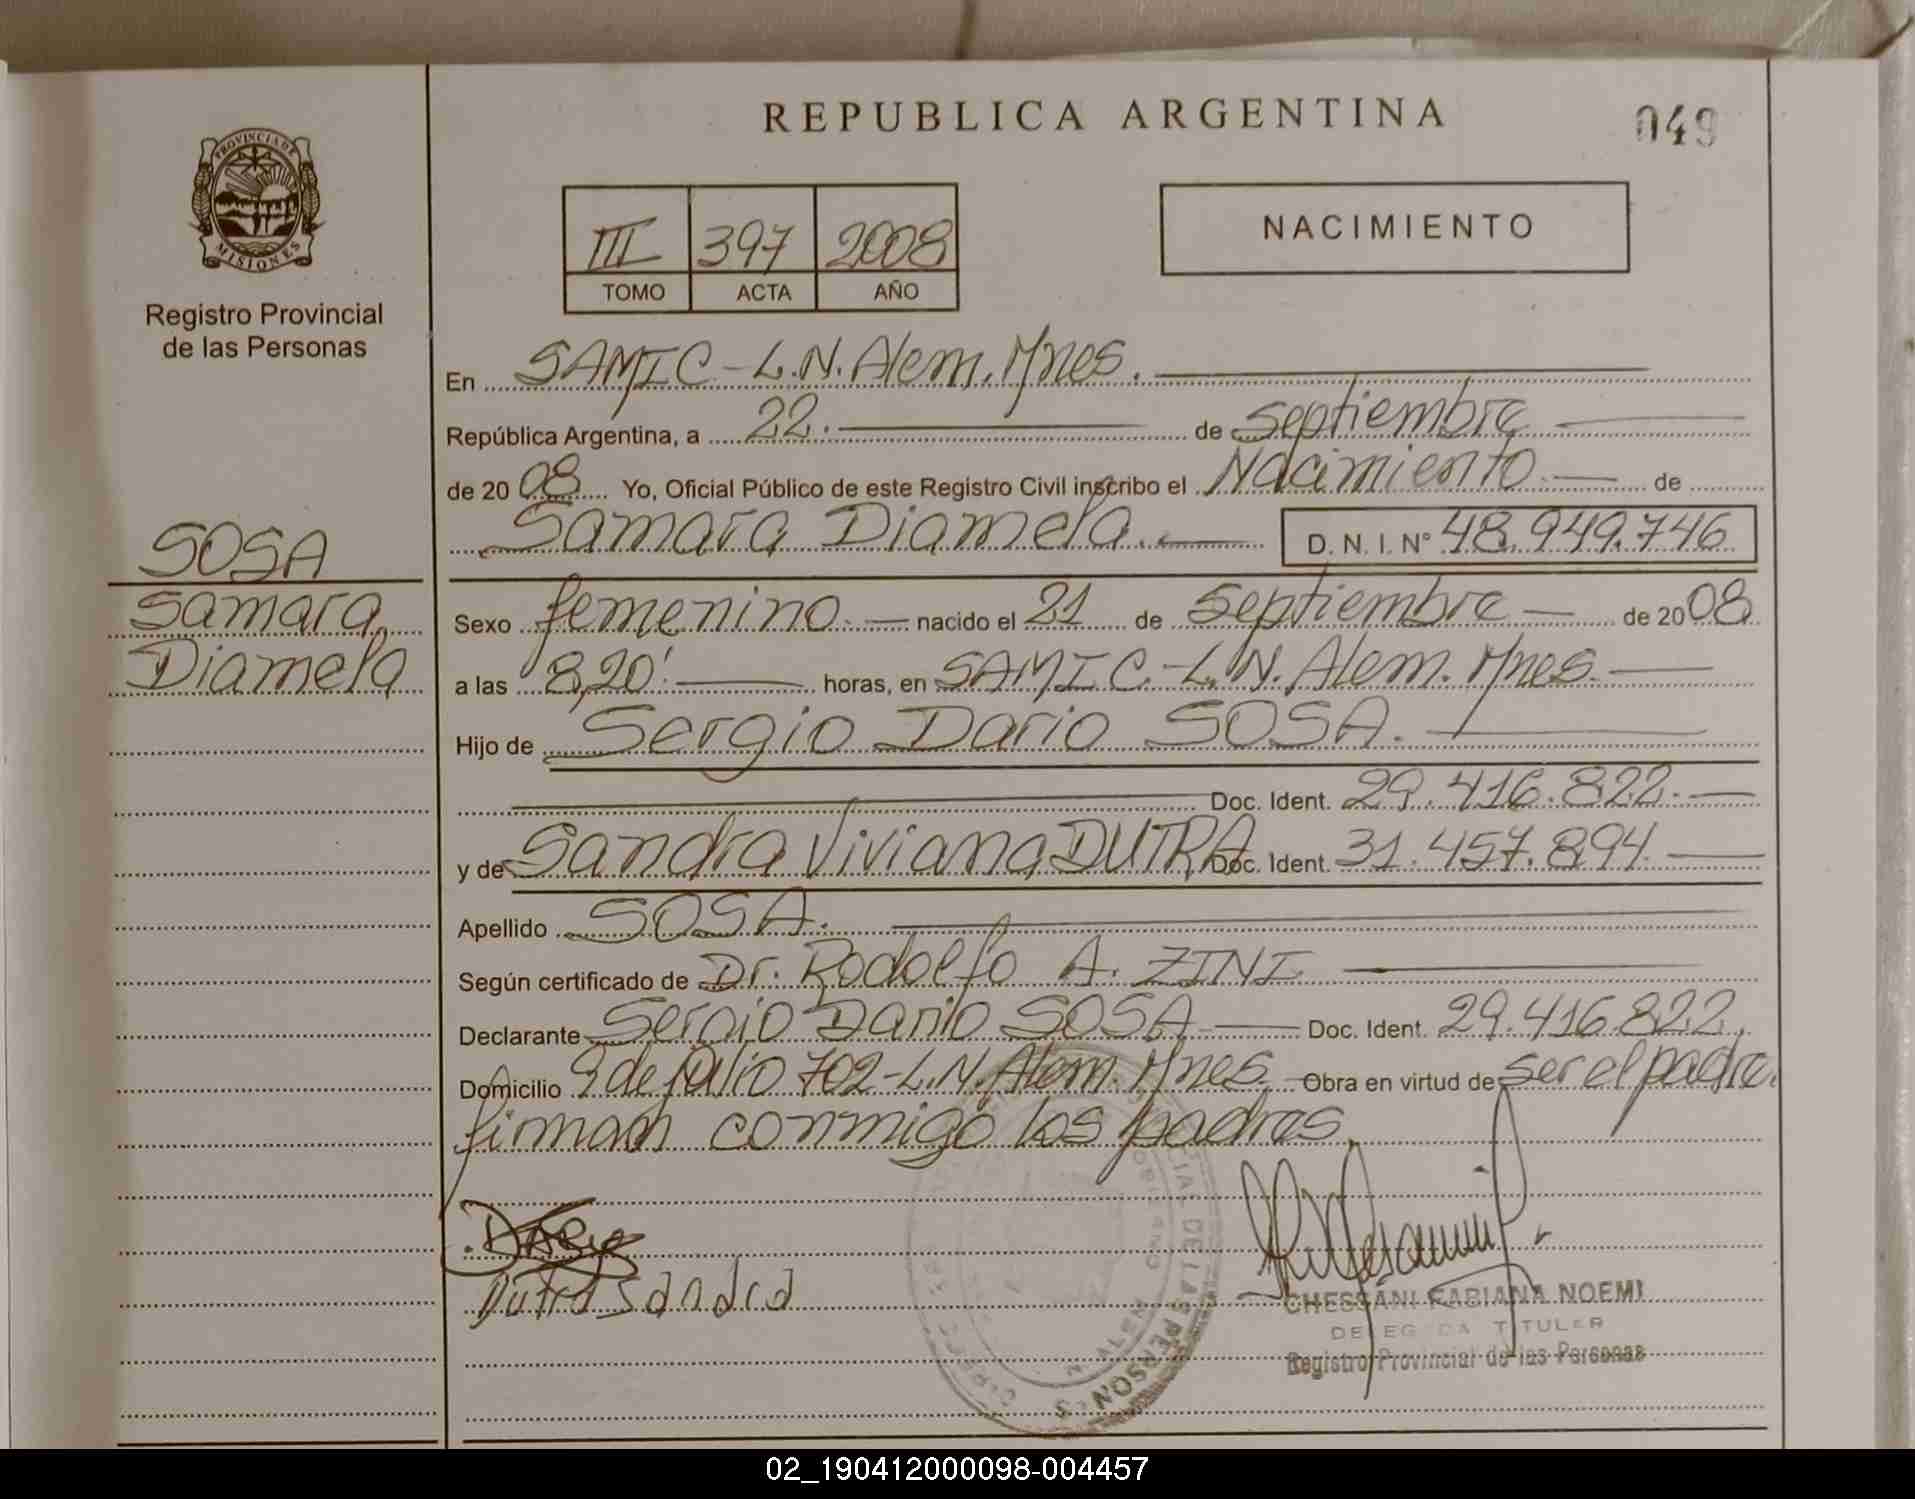 REPUBLICA ARGENTINA
049
PROVINCIA DE
MISIONES
Registro Provincial
de las Personas
III 397 2008
TOMO ACTA AÑO
NACIMIENTO
En SAMIC - L.N. Alem. Mnes.
República Argentina, a 22. de septiembre
de 2008 Yo, Oficial Público de este Registro Civil inscribo el Nacimiento de
Samara Diamela. D. N. I. Nº 48.949.746
SOSA
Samara
Diamela
Sexo femenino nacido el 21 de Septiembre de 2008
a las 8,20' horas, en SAMIC - L.N. Alem. Mnes.
Hijo de Sergio Dario SOSA.
Doc. Ident. 29.416.822.
y de Sandra Viviana DUTRA Doc. Ident. 31.457.894.
Apellido SOSA.
Según certificado de Dr. Rodolfo A. ZINI
Declarante Sergio Dario SOSA Doc. Ident. 29.416.822.
Domicilio 9 de julio 702 - L.N. Alem. Mnes. Obra en virtud de ser el padre.
firman conmigo los padres.
Dutra Sandra
CHESSANI FABIANA NOEMI
DELEGADA TITULAR
Registro Provincial de las Personas
02_190412000098-004457